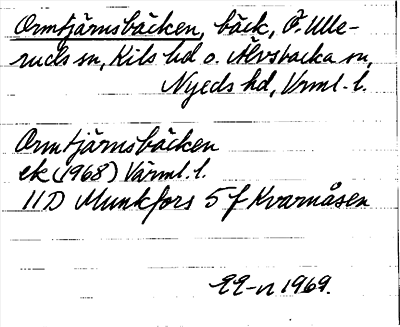 Ormtjärnsbäcken, bäck, Ö. Ulle-
ruds sn, Kils hd o. Älvsbacka sn,
Nyeds hd, Vrml. l.
Ormtjärnsbäcken
ek (1968) Värml. l.
11D Munkfors 5f Kvarnåsen
EE-n 1969.